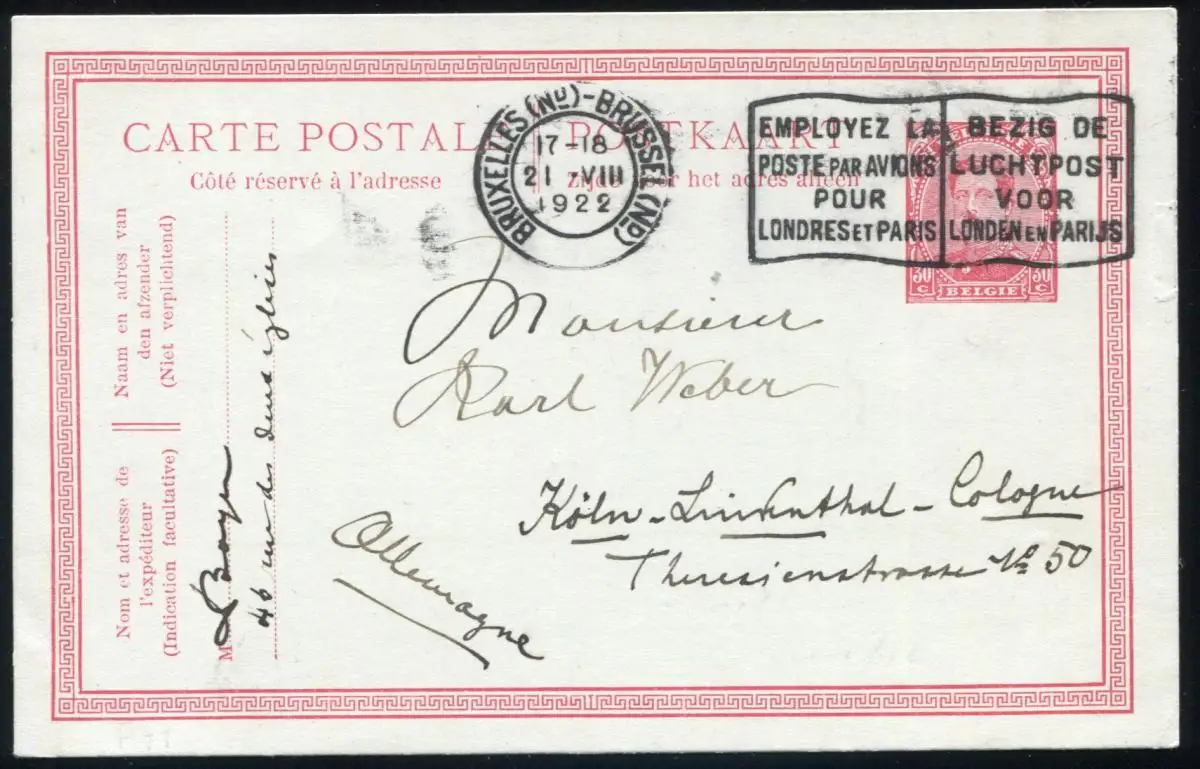 CARTE POSTALE
POSTKAART
Côté réservé à l'adresse
zijde voor het adres alleen
BRUXELLES (ND)-BRUSSEL (ND)
17-18
21 -VIII
1922
EMPLOYEZ LA
POSTE PAR AVIONS
POUR
LONDRES ET PARIS
BEZIG DE
LUCHTPOST
VOOR
LONDEN EN PARIJS
30 30
C C
BELGIE
Monsieur
Karl Weber
Köln-Lindenthal-Cologne
Theresienstrasse No 50
Allemagne
Naam en adres van
den afzender
(Niet verplichtend)
Nom et adresse de
l'expéditeur
(Indication facultative)
M
46 rue des deux églises